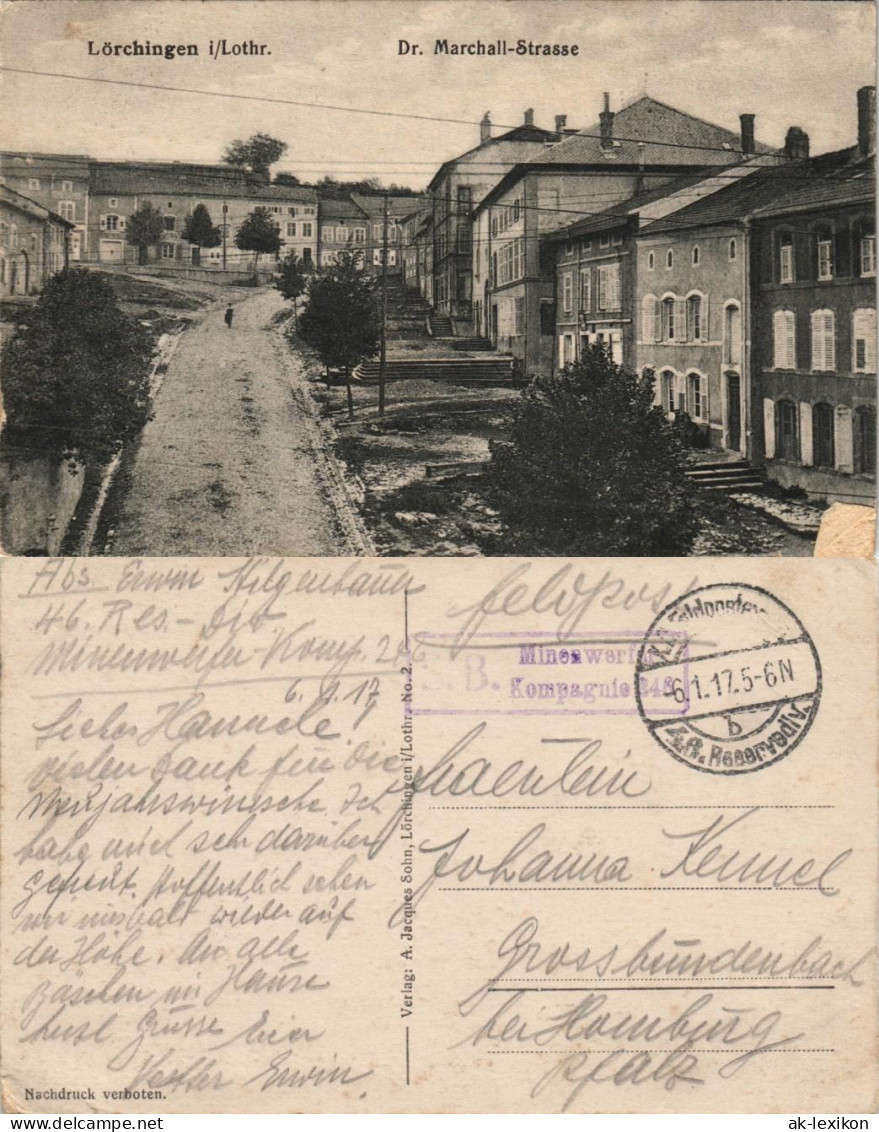 Lörchingen i/Lothr.
Dr. Marchall-Strasse
Abs. Erwin Hilgenbauer
46. Res.-Div.
Minenwerfer-Komp. 246
6. 1. 17
Liebes Hannele!
vielen Dank für die
Neujahrswünsche. Ich
habe mich sehr darüber
gefreut. Hoffentlich sehen
wir uns bald wieder auf
der Höhe. An alle
zu Hause
herzl Grüsse Euer
Vetter Erwin
Nachdruck verboten.
Verlag: A. Jacques Sohn, Lörchingen i/Lothr. No. 2.
Feldpost
S. B. Minenwerfer
Kompagnie 246
6.1.17.5-6N
b
Reserve
Fraeulein
Johanna Kennel
Grossbundenbach
bei Homburg
Pfalz
ak-lexikon